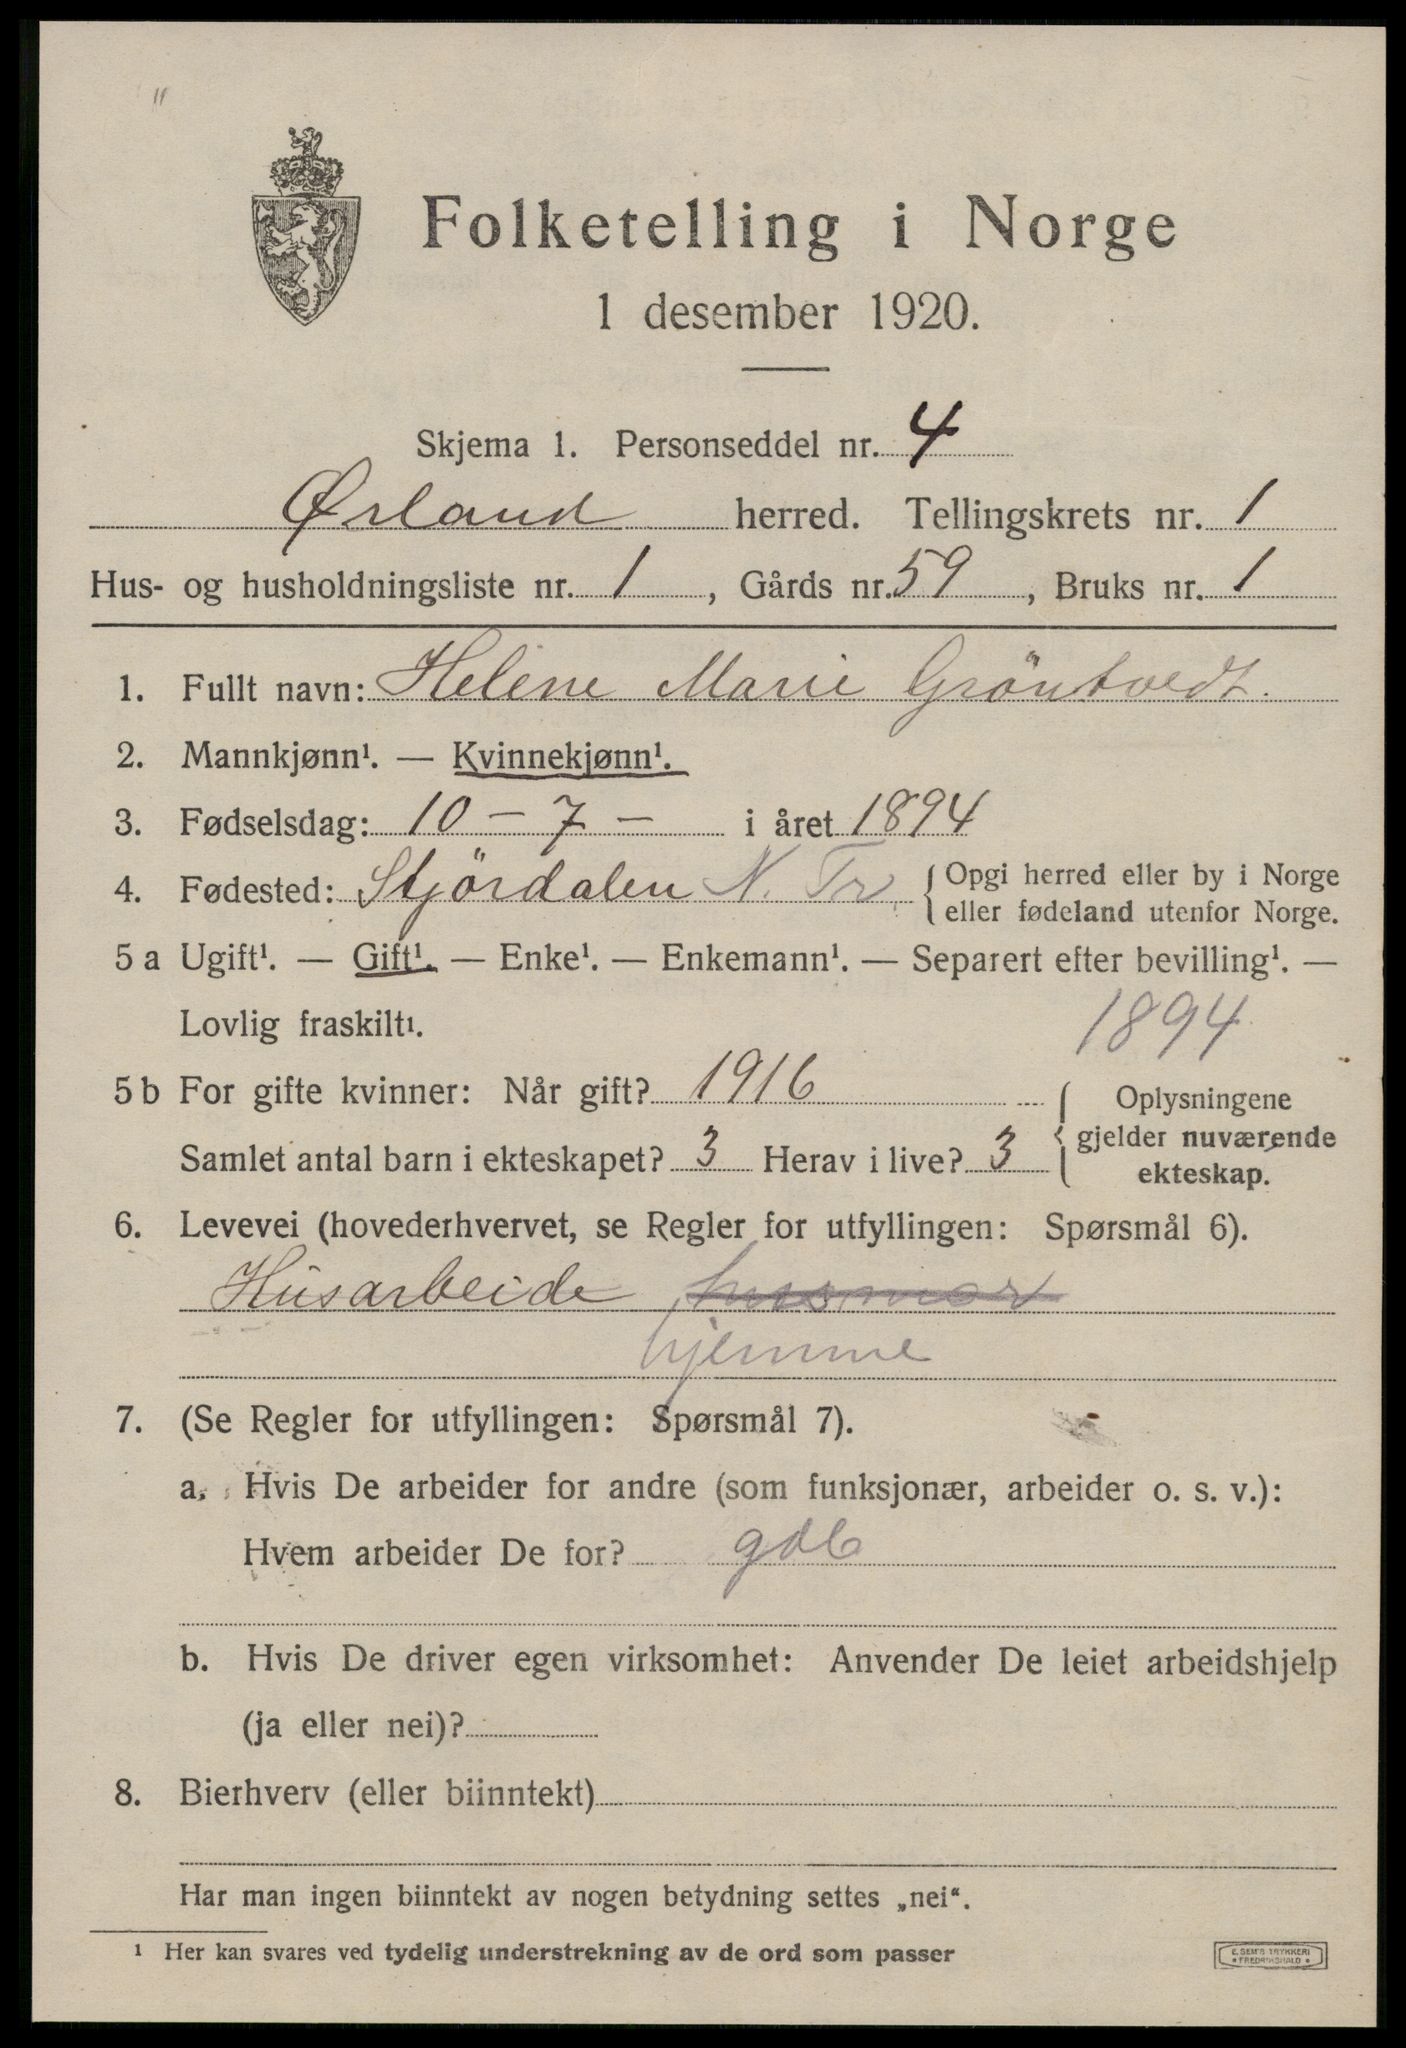 Folketelling i Norge
1 desember 1920.
Skjema 1. Personseddel nr. 4
Ørland herred. Tellingskrets nr. 1
Hus- og husholdningsliste nr. 1, Gårds nr. 59, Bruks nr. 1
1. Fullt navn: Helene Marie Gröntvedt.
2. Mannkjønn¹. — Kvinnekjønn¹.
3. Fødselsdag: 10 - 7 - i året 1894
4. Fødested: Stjördalen N. Tr. { Opgi herred eller by i Norge
eller fødeland utenfor Norge.
5 a Ugift¹. — Gift¹. — Enke¹. — Enkemann¹. — Separert efter bevilling¹. —
Lovlig fraskilt¹.
1894
5 b For gifte kvinner: Når gift? 1916
Samlet antal barn i ekteskapet? 3 Herav i live? 3
{ Oplysningene
gjelder nuværende
ekteskap.
6. Levevei (hovederhvervet, se Regler for utfyllingen: Spørsmål 6).
Husarbeide husmor
hjemme
7. (Se Regler for utfyllingen: Spørsmål 7).
a. Hvis De arbeider for andre (som funksjonær, arbeider o. s. v.):
Hvem arbeider De for? gdb
b. Hvis De driver egen virksomhet: Anvender De leiet arbeidshjelp
(ja eller nei)?
8. Bierhverv (eller biinntekt)
Har man ingen biinntekt av nogen betydning settes „nei“.
¹ Her kan svares ved tydelig understrekning av de ord som passer
E. SEM'S TRYKKERI
* FREDRIKSHALD *